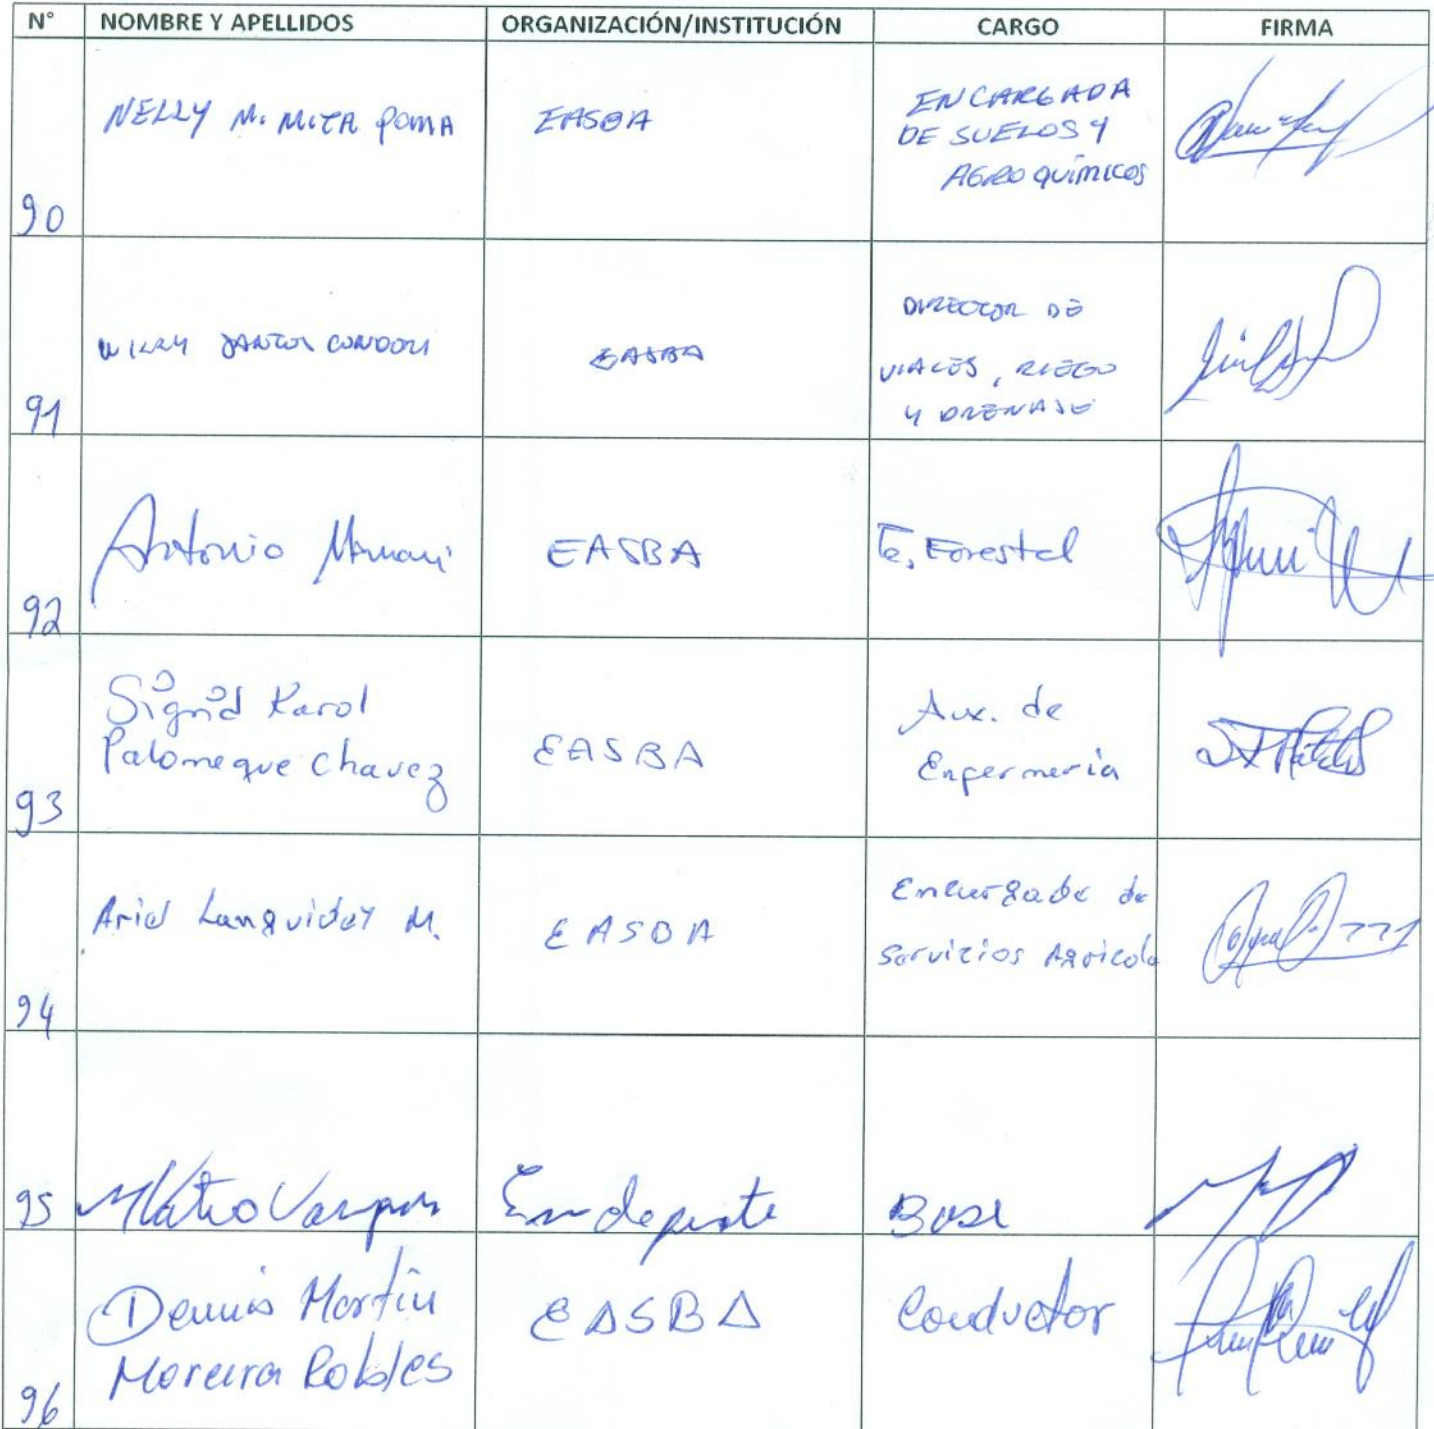 N° NOMBRE Y APELLIDOS ORGANIZACIÓN/INSTITUCIÓN CARGO FIRMA
90 NELLY M. MITA POMA EASBA ENCARGADA
DE SUELOS Y
AGROQUÍMICOS
91 WILLY SANTOS CONDORI EASBA DIRECTOR DE
VIALES, RIEGO
Y DRENAJE
92 Antonio Mamani EASBA Forestal
93 Sigrid Karol
Palomeque Chavez EASBA Aux. de
Enfermeria
94 Ariel Languidey M. EASBA Encargado de
Servicios Agricola
95 Mateo Vargas Base
96 Dennis Martín
Moreira Robles EASBA Conductor